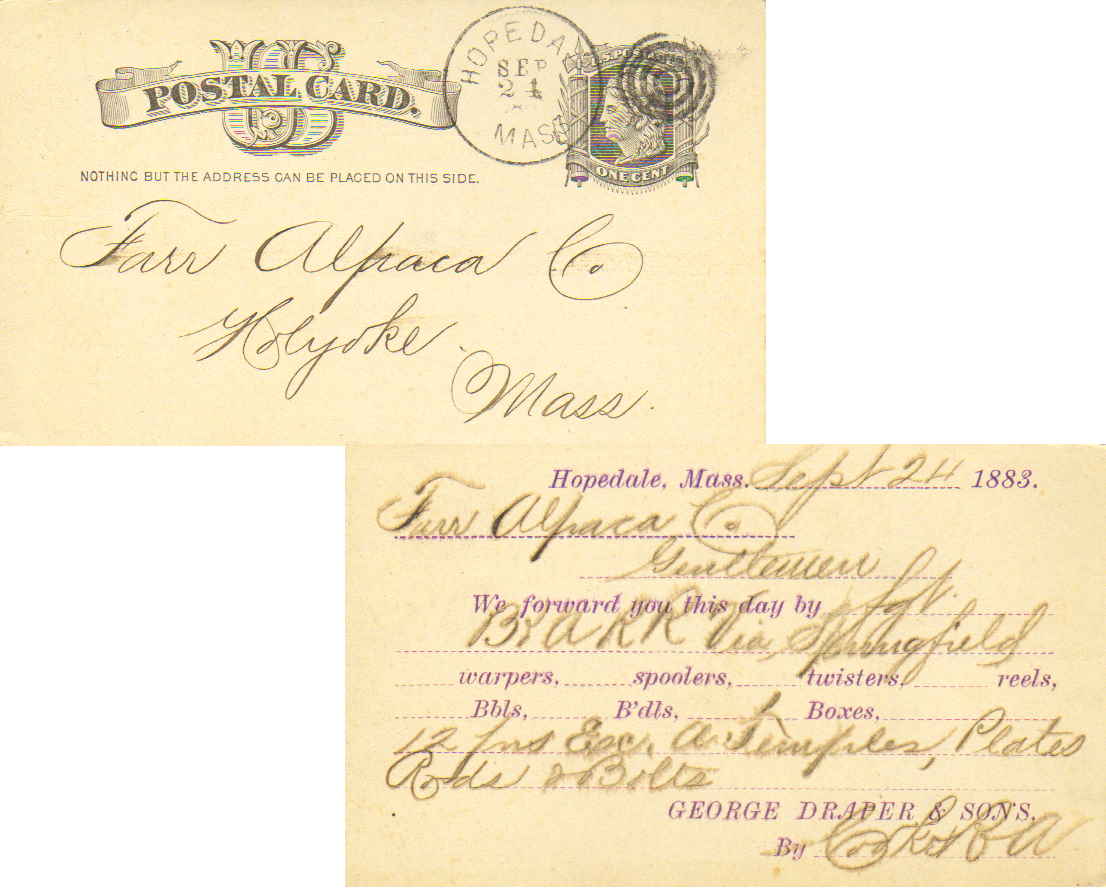 US
POSTAL CARD.
HOPEDALE
SEP
24
MASS
U.S. POSTAGE
ONE CENT
NOTHING BUT THE ADDRESS CAN BE PLACED ON THIS SIDE.
Farr Alpaca Co
Holyoke
Mass.
Hopedale, Mass. Sept 24 1883.
Farr Alpaca Co
Gentlemen
We forward you this day by Fgt.
B & A R R Via, Springfield
warpers, spoolers, twisters, reels,
Bbls, B'dls, 1 Boxes,
12 Exc. Temples, Plates
Rods & Bolts
GEORGE DRAPER & SONS.
By